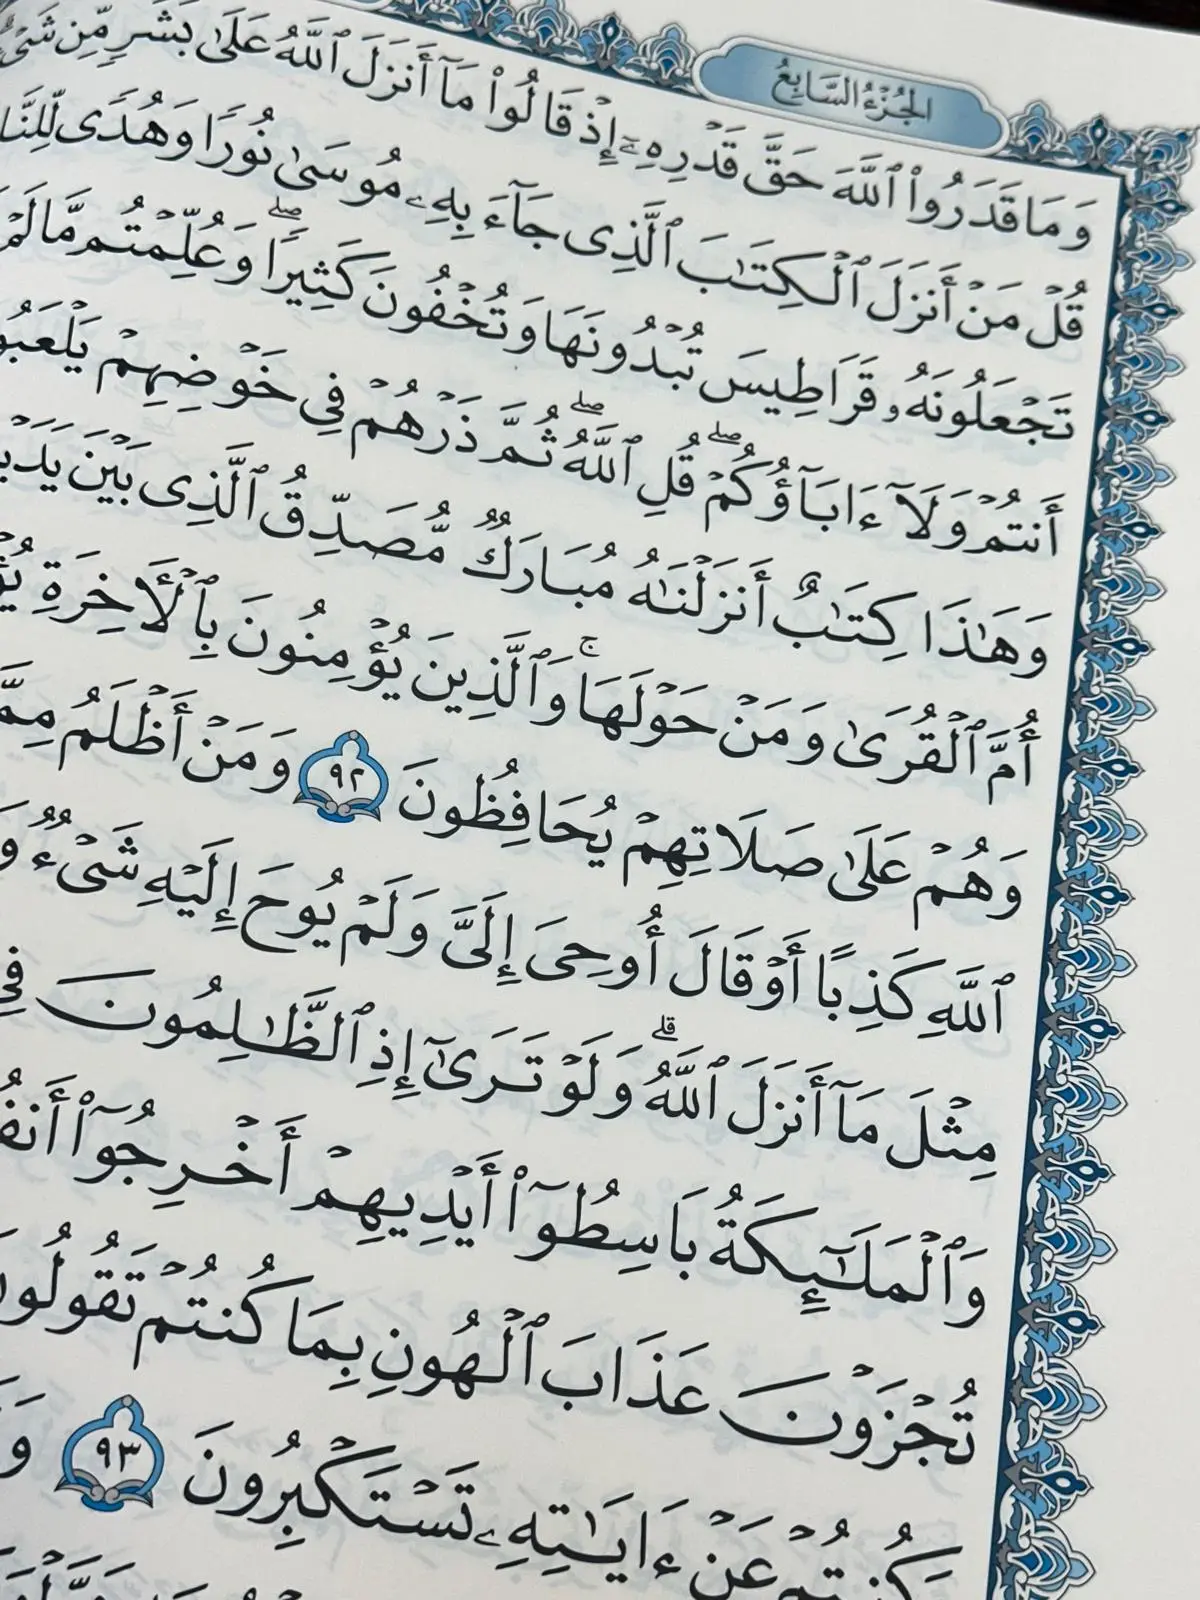 الجُزْءُ السَّابِعُ
وَمَا قَدَرُوا۟ ٱللَّهَ حَقَّ قَدْرِهِۦٓ إِذْ قَالُوا۟ مَآ أَنزَلَ ٱللَّهُ عَلَىٰ بَشَرٍ مِّن شَىْءٍ
قُلْ مَنْ أَنزَلَ ٱلْكِتَٰبَ ٱلَّذِى جَآءَ بِهِۦ مُوسَىٰ نُورًا وَهُدًى
تَجْعَلُونَهُۥ قَرَاطِيسَ تُبْدُونَهَا وَتُخْفُونَ كَثِيرًا ۖ وَعُلِّمْتُم مَّا لَمْ
أَنتُمْ وَلَآ ءَابَآؤُكُمْ ۖ قُلِ ٱللَّهُ ۖ ثُمَّ ذَرْهُمْ فِى خَوْضِهِمْ
وَهَٰذَا كِتَٰبٌ أَنزَلْنَٰهُ مُبَارَكٌ مُّصَدِّقُ ٱلَّذِى بَيْنَ
أُمَّ ٱلْقُرَىٰ وَمَنْ حَوْلَهَا ۚ وَٱلَّذِينَ يُؤْمِنُونَ بِٱلْءَاخِرَةِ
وَهُمْ عَلَىٰ صَلَاتِهِمْ يُحَافِظُونَ ٩٢ وَمَنْ أَظْلَمُ
ٱللَّهِ كَذِبًا أَوْ قَالَ أُوحِىَ إِلَىَّ وَلَمْ يُوحَ إِلَيْهِ شَىْءٌ
مِثْلَ مَآ أَنزَلَ ٱللَّهُ ۗ وَلَوْ تَرَىٰٓ إِذِ ٱلظَّٰلِمُونَ فِى
وَٱلْمَلَٰٓئِكَةُ بَاسِطُوٓا۟ أَيْدِيهِمْ أَخْرِجُوٓا۟
تُجْزَوْنَ عَذَابَ ٱلْهُونِ بِمَا كُنتُمْ تَقُولُونَ
كُنتُمْ عَنْ ءَايَٰتِهِۦ تَسْتَكْبِرُونَ ٩٣